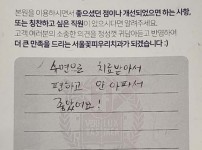 본원을 이용하시면서 좋으셨던 점이나 개선되었으면 하는 사항,
또는 칭찬하고 싶은 직원이 있으시다면 알려주세요.
고객 여러분의 소중한 의견을 정성껏 귀담아듣고 반영하여
더 큰 만족을 드리는 서울꽃피우리치과가 되겠습니다 :)
수면으로 치료받아서
편하고 안 아파서
좋았어요!